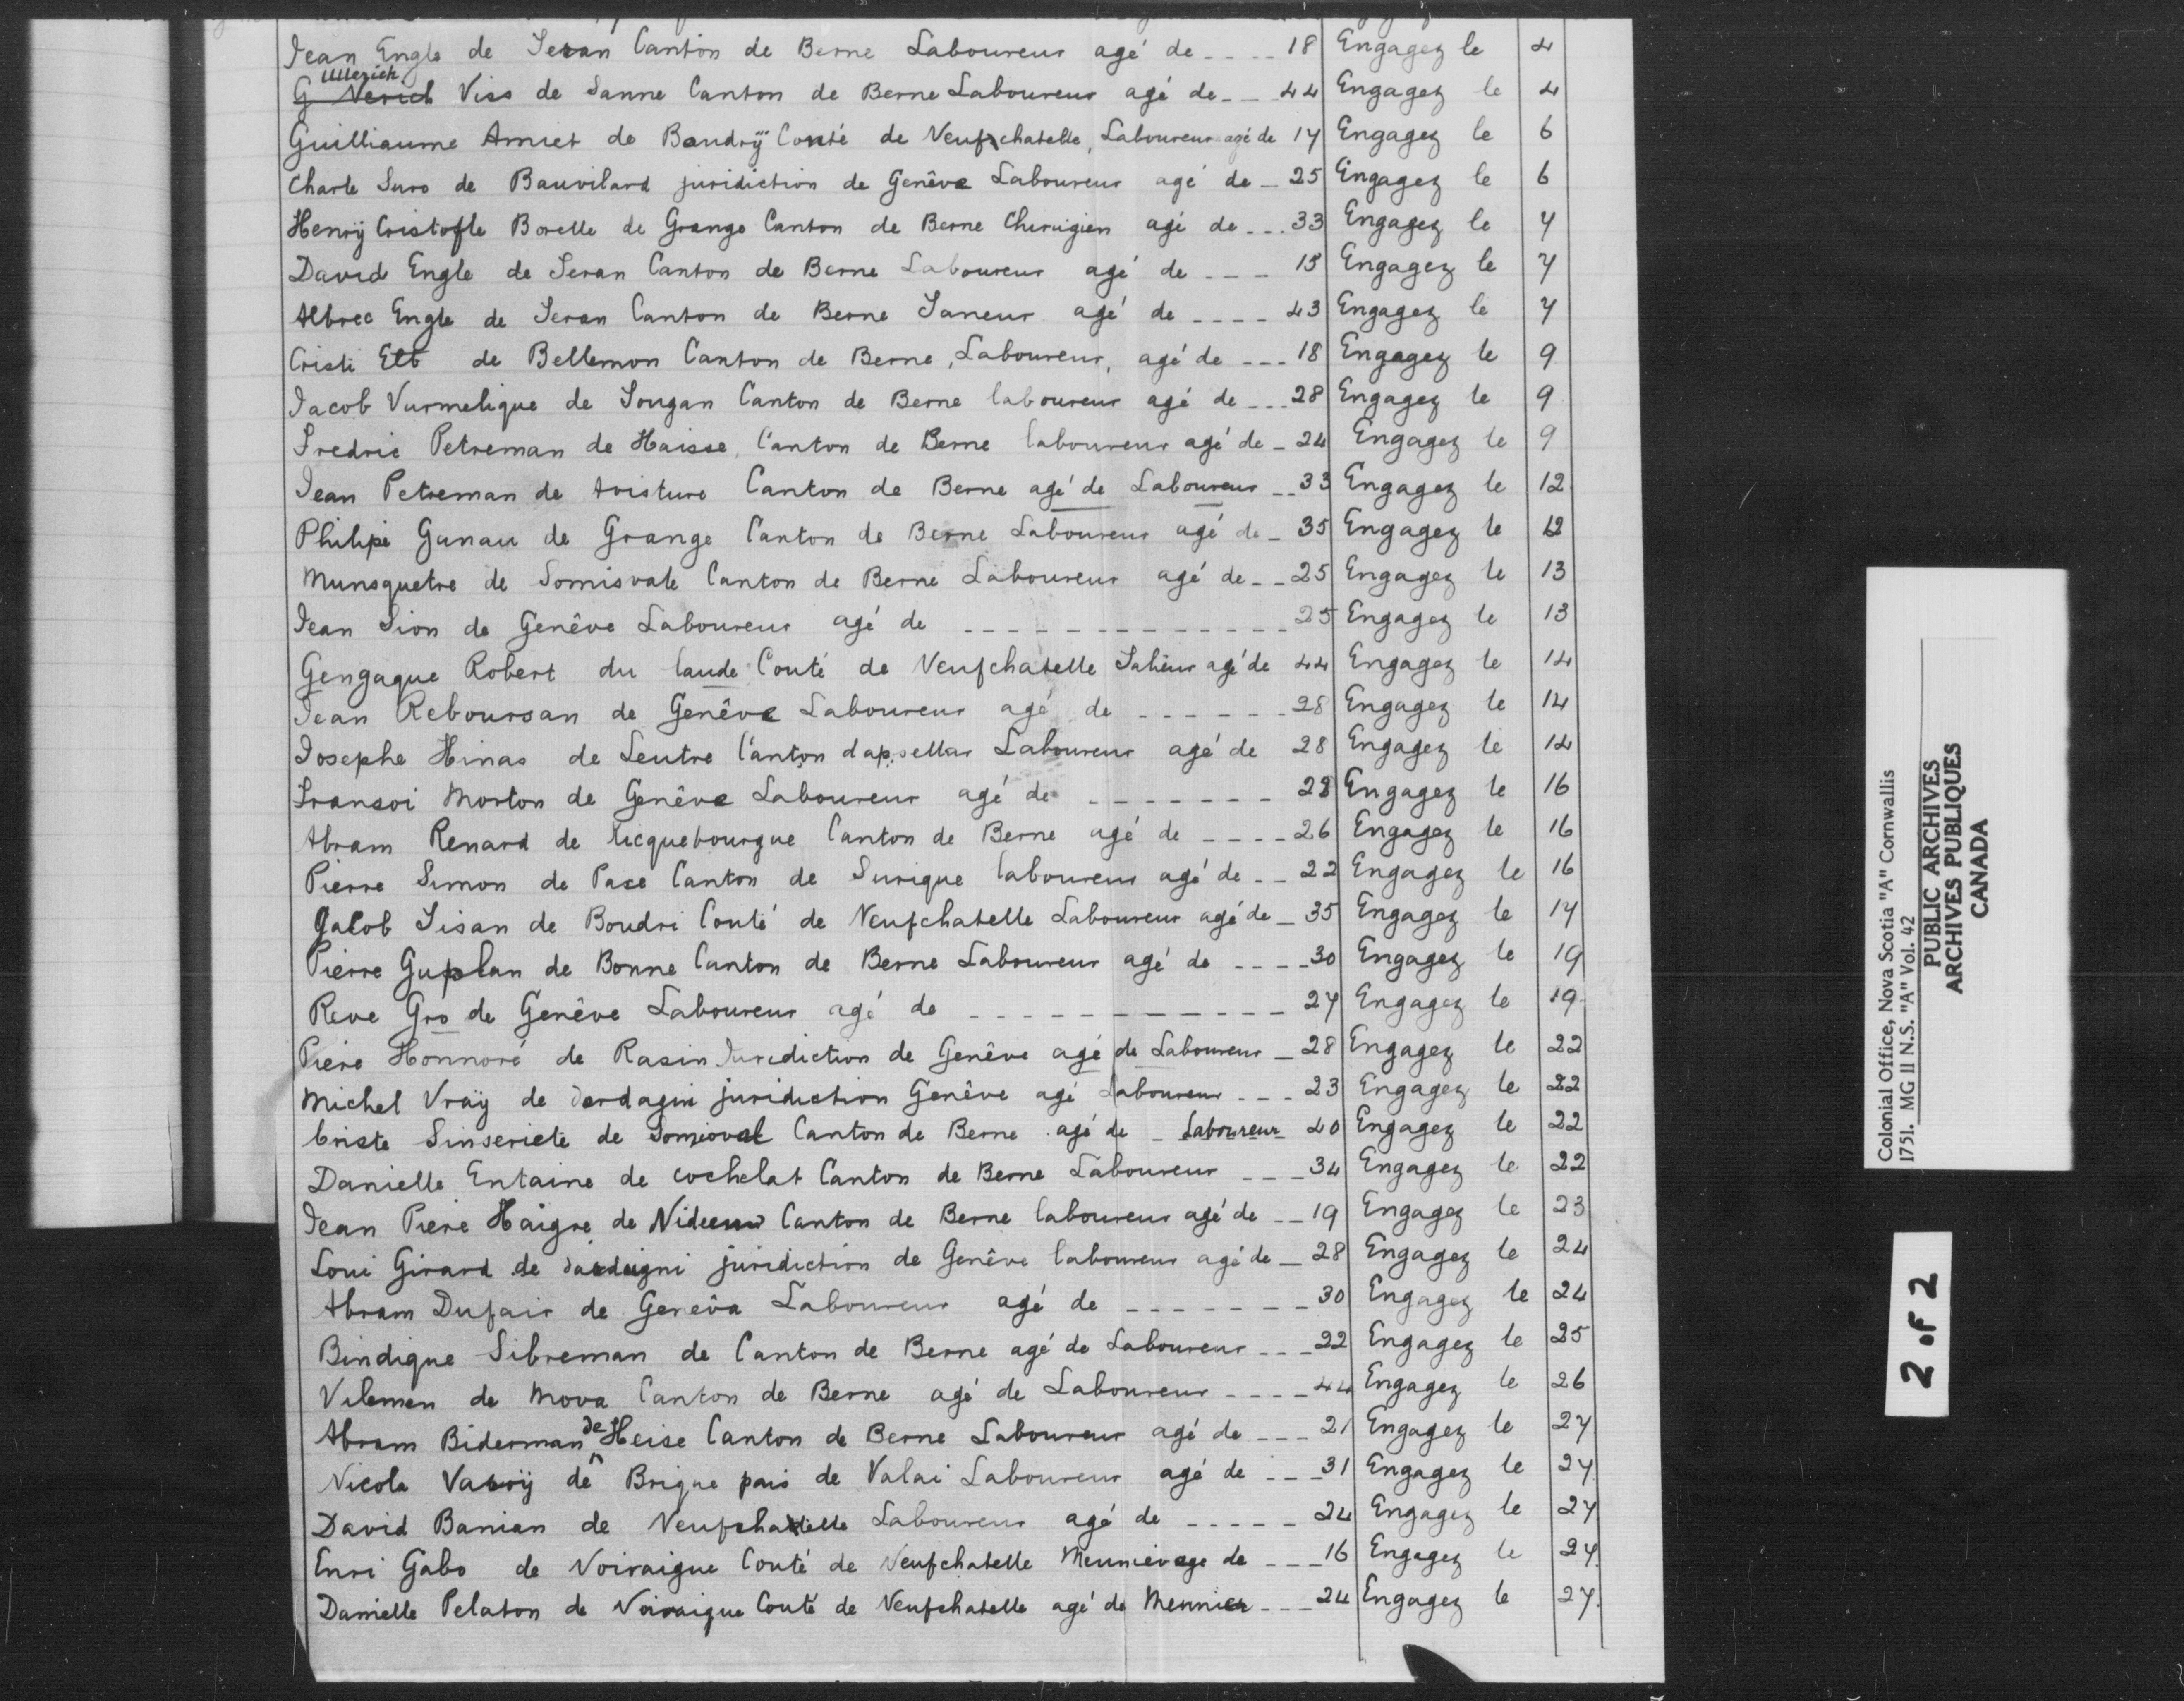 Jean Engle de Seran Canton de Berne Laboureur agé de 18 Engagez le 4
Ullerich
G Nerich Viss de Sanne Canton de Berne Laboureur agé de 44 Engagez le 4
Guilliaume Amiet de Baudrÿ Conté de Neufchatelle, Laboureur agé de 17 Engagez le 6
Charle Suro de Bauvilard juridiction de Genêve Laboureur agé de 25 Engagez le 6
Henrÿ Cristofle Borelle de Grange Canton de Berne Chirugien agé de 33 Engagez le 7
David Engle de Seran Canton de Berne Laboureur agé de 15 Engagez le 7
Albrec Engle de Seran Canton de Berne Taneur agé de 43 Engagez le 7
Cristi Elb de Bellemon Canton de Berne, Laboureur, agé de 18 Engagez le 9
Jacob Vurmelique de Tougan Canton de Berne laboureur agé de 28 Engagez le 9
Fredric Petreman de Haisse, Canton de Berne laboureur agé de 24 Engagez le 9
Jean Petreman de Avisture Canton de Berne agé de Laboureur 33 Engagez le 12
Philipe Gunau de Grange Canton de Berne Laboureur agé de 35 Engagez le 12
Munsquetre de Somisvale Canton de Berne Laboureur agé de 25 Engagez le 13
Jean Sion de Genêve Laboureur agé de 25 Engagez le 13
Gengaque Robert du laude Couté de Neufchatelle agé de 44 Engagez le 14
Jean Reboursan de Genêve Laboureur agé de 28 Engagez le 14
Josephe Hinas de Leutre Canton dapsellar Laboureur agé de 28 Engagez le 14
Fransoi Morton de Genêve Laboureur agé de 28 Engagez le 16
Abram Renard de licquebourgue Canton de Berne agé de 26 Engagez le 16
Pierre Simon de Pace Canton de Surique laboureur agé de 22 Engagez le 16
Jacob Tisan de Boudri Couté de Neufchatelle Laboureur agé de 35 Engagez le 17
Pierre Guplan de Bonne Canton de Berne Laboureur agé de 30 Engagez le 19
Reve Gro de Genêve Laboureur agé de 27 Engagez le 19
Piere Honnoré de Rasin Jurediction de Genêve agé de Laboureur 28 Engagez le 22
Michel Vraÿ de dardagni juridiction Genêve agé Laboureur 23 Engagez le 22
Criste Sinseriete de Somioval Canton de Berne agé de Laboureur 40 Engagez le 22
Danielle Entaine de cochelat Canton de Berne Laboureur 34 Engagez le 22
Jean Piere Haigre de Canton de Berne laboureur agé de 19 Engagez le 23
Loui Girard de dardagni juridiction de Genêve laboureur agé de 28 Engagez le 24
Abram Dufair de Genêva Laboureur agé de 30 Engagez le 24
Bindique Sibreman de Canton de Berne agé de Laboureur 22 Engagez le 25
Vilemen de Mova Canton de Berne agé de Laboureur 44 Engagez le 26
Abram Biderman de Heise Canton de Berne Laboureur agé de 21 Engagez le 27
Nicola de Brigue pais de Valai Laboureur agé de 31 Engagez le 27
David Banian de Neufchatelle Laboureur agé de 24 Engagez le 27
Enri Gabo de Noiraigue Couté de Neufchatelle Meunier age de 16 Engagez le 27.
Danielle Pelaton de Noiraigue Couté de Neufchatelle agé de Meunier 24 Engagez le 27.
Colonial Office, Nova Scotia "A" Cornwallis
1751. MG 11 N.S. "A" Vol. 42
PUBLIC ARCHIVES
ARCHIVES PUBLIQUES
CANADA
2 of 2